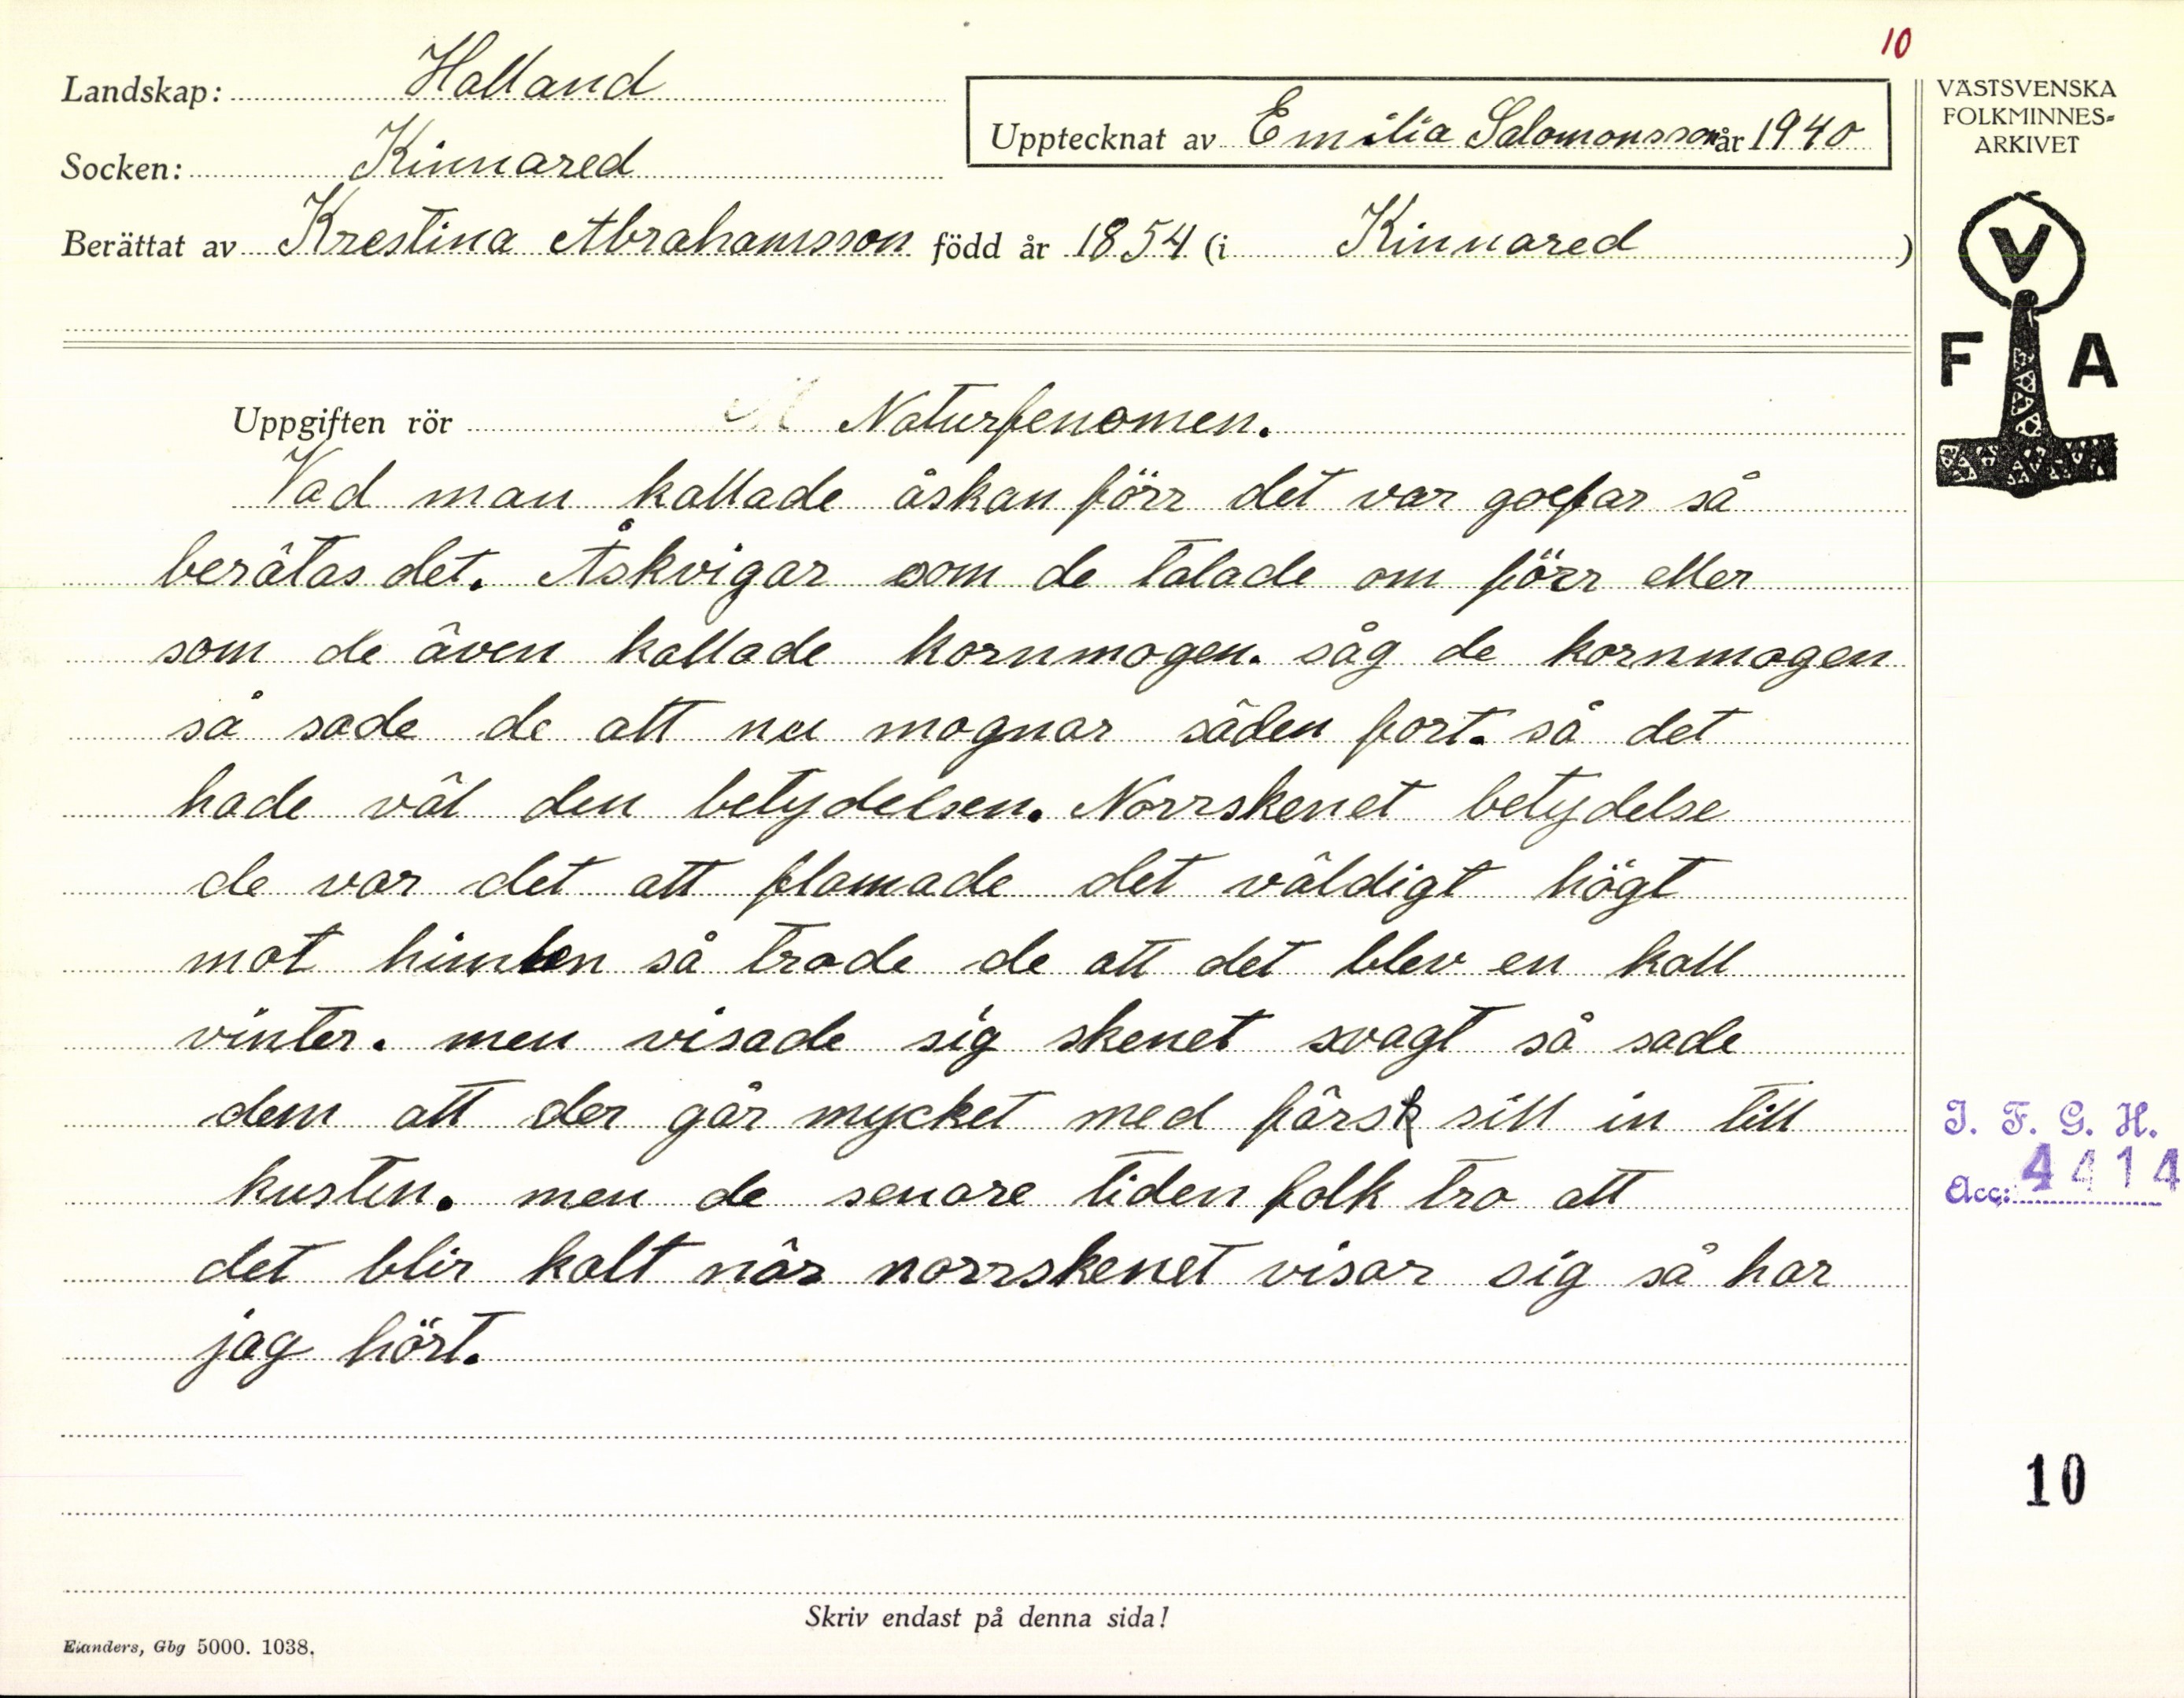 10
Landskap: Halland
Socken: Kinnared
Upptecknat av Emilia Salomonsson år 1940
Berättat av Krestina Abrahamsson född år 1854 (i Kinnared )
VÄSTSVENSKA
FOLKMINNES=
ARKIVET
V
F A
Uppgiften rör Naturfenomen.
Vad man kallade åskan förr det var goefar så
berätas det. Åskvigar som de talade om förr eller
som de även kallade kornmogen. såg de kornmogen
så sade de att nu mognar säden fort. så det
hade väl den betydelsen. Norrskenet betydelse
de var det att flamade det väldigt högt
mot himlen så trode de att det blev en kall
vinter. men visade sig skenet svagt så sade
dem att der går mycket med färsk sill in till
kusten. men de senare tiden folk tro att
det blir kalt när norrskenet visar sig så har
jag hört.
I. F. G. H.
Acc: 4414
10
Skriv endast på denna sida!
Elanders, Gbg 5000. 1038.